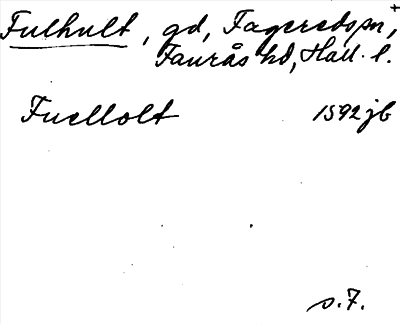 Fulhult, gd, Fageredspn, +
Faurås hd, Hall. l.
Fuellolt 1592 jb
s. 7.